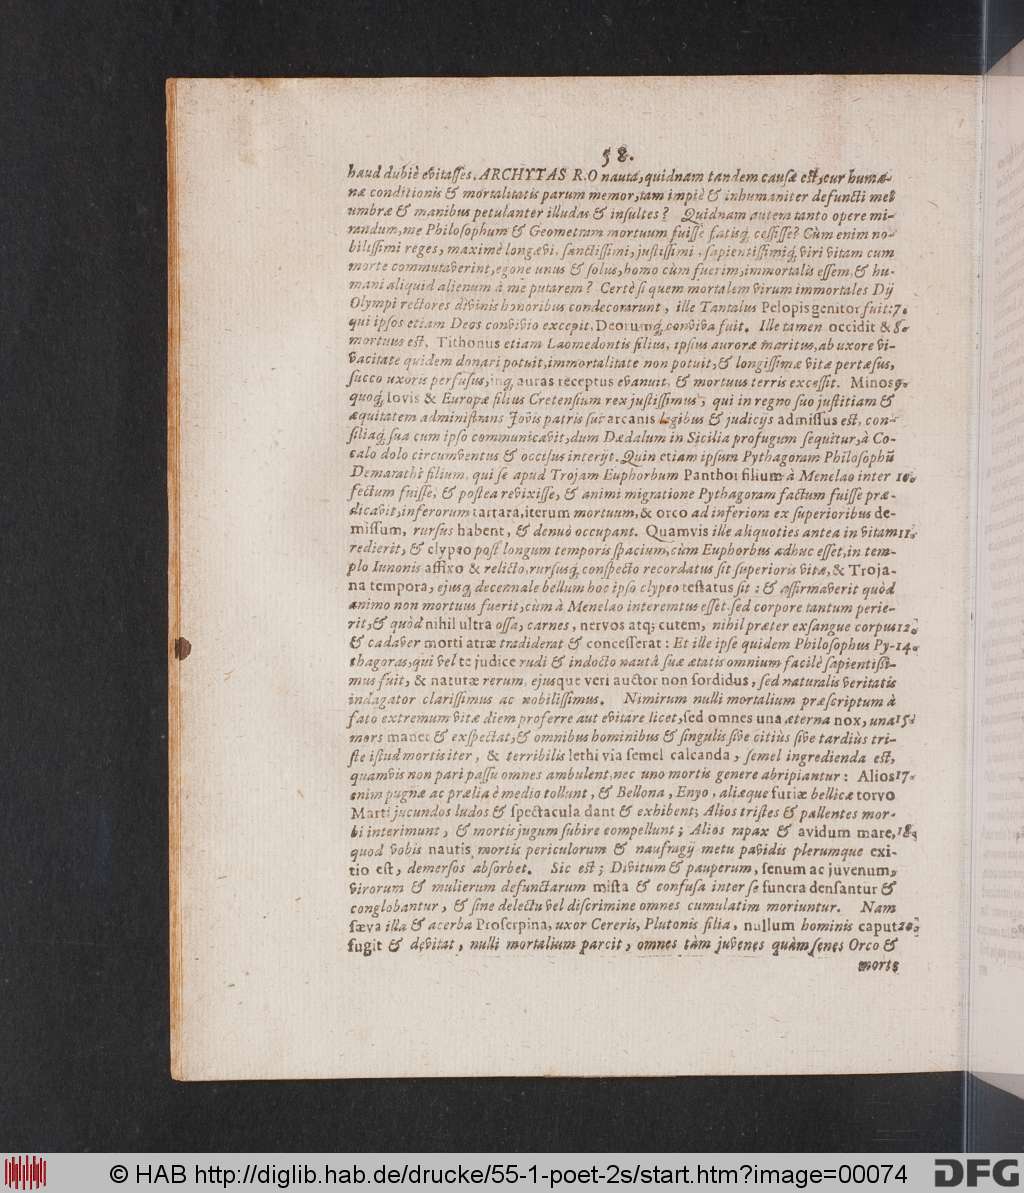 58.
haud dubiè evitasses. ARCHYTAS R. O nauta, quidnam tandem causæ est, cur huma-
næ conditionis & mortalitatis parum memor, tam impiè & inhumaniter defuncti mei
umbræ & manibus petulanter illudas & insultes? Quidnam autem tanto opere mi-
randum, me Philosophum & Geometram mortuum fuisse fatisq́; cessisse? Cùm enim no-
bilissimi reges, maximè longævi, sanctissimi, justissimi, sapientissimiq́; viri vitam cum
morte commutaverint, egone unus & solus, homo cùm fuerim, immortalis essem, & hu-
mani aliquid alienum à me putarem? Certè si quem mortalem virum immortales Dij
Olympi rectores divinis honoribus condecorarunt, ille Tantalus Pelopis genitor fuit: 7.
qui ipsos etiam Deos convivio excepit, Deorumq́; conviva fuit. Ille tamen occidit & 8.
mortuus est. Tithonus etiam Laomedontis filius, ipsius auroræ maritus, ab uxore vi-
vacitate quidem donari potuit, immortalitate non potuit, & longissimæ vitæ pertæsus,
succo uxoris perfusus, inq́; auras receptus evanuit, & mortuus terris excessit. Minos 9.
quoq́; Iovis & Europæ filius Cretensium rex justissimus; qui in regno suo justitiam &
æquitatem administrans Jovis patris sui arcanis legibus & judicijs admissus est, con-
siliaq́; sua cum ipso communicavit, dum Dædalum in Sicilia profugum sequitur, à Co-
calo dolo circumventus & occisus interijt. Quin etiam ipsum Pythagoram Philosophū
Demarathi filium, qui se apud Trojam Euphorbum Panthoi filium à Menelao inter 10.
fectum fuisse, & postea revixisse, & animi migratione Pythagoram factum fuisse præ-
dicavit, inferorum tartara, iterum mortuum, & orco ad inferiora ex superioribus de-
missum, rursus habent, & denuò occupant. Quamvis ille aliquoties antea in vitam 11.
redierit, & clypeo post longum temporis spacium, cùm Euphorbus adhuc esset, in tem-
plo Iunonis affixo & relicto, rursusq́; conspecto recordatus sit superioris vitæ, & Troja-
na tempora, ejusq́; decennale bellum hoc ipso clypeo testatus sit: & affirmaverit quòd
animo non mortuus fuerit, cùm à Menelao interemtus esset. sed corpore tantum perie-
rit, & quòd nihil ultra ossa, carnes, nervos atq; cutem, nihil præter exsangue corpus 12.
& cadaver morti atræ tradiderat & concesserat: Et ille ipse quidem Philosophus Py- 14.
thagoras, qui vel te judice rudi & indocto nautâ suæ ætatis omnium facilè sapientissi-
mus fuit, & naturæ rerum, ejusque veri auctor non sordidus, sed naturalis veritatis
indagator clarissimus ac nobilissimus. Nimirum nulli mortalium præscriptum à
fato extremum vitæ diem proferre aut evitare licet, sed omnes una æterna nox, una 15.
mors manet & exspectat, & omnibus hominibus & singulis sive citiùs sive tardiùs tri-
ste istud mortis iter, & terribilis lethi via semel calcanda, semel ingredienda est,
quamvis non pari passu omnes ambulent, nec uno mortis genere abripiantur: Alios 17.
enim pugnæ ac prælia è medio tollunt, & Bellona, Enyo, aliæque furiæ bellicæ torvo
Marti jucundos ludos & spectacula dant & exhibent; Alios tristes & pallentes mor-
bi interimunt, & mortis jugum subire compellunt; Alios rapax & avidum mare, 18.
quod vobis nautis mortis periculorum & naufragij metu pavidis plerumque exi-
tio est, demersos absorbet. Sic est; Divitum & pauperum, senum ac juvenum,
virorum & mulierum defunctarum mista & confusa inter se funera densantur &
conglobantur, & sine delectu vel discrimine omnes cumulatim moriuntur. Nam
sæva illa & acerba Proserpina, uxor Cereris, Plutonis filia, nullum hominis caput 20.
fugit & devitat, nulli mortalium parcit, omnes tàm juvenes quàm senes Orco &
mortis
© HAB http://diglib.hab.de/drucke/55-1-poet-2s/start.htm?image=00074
DFG